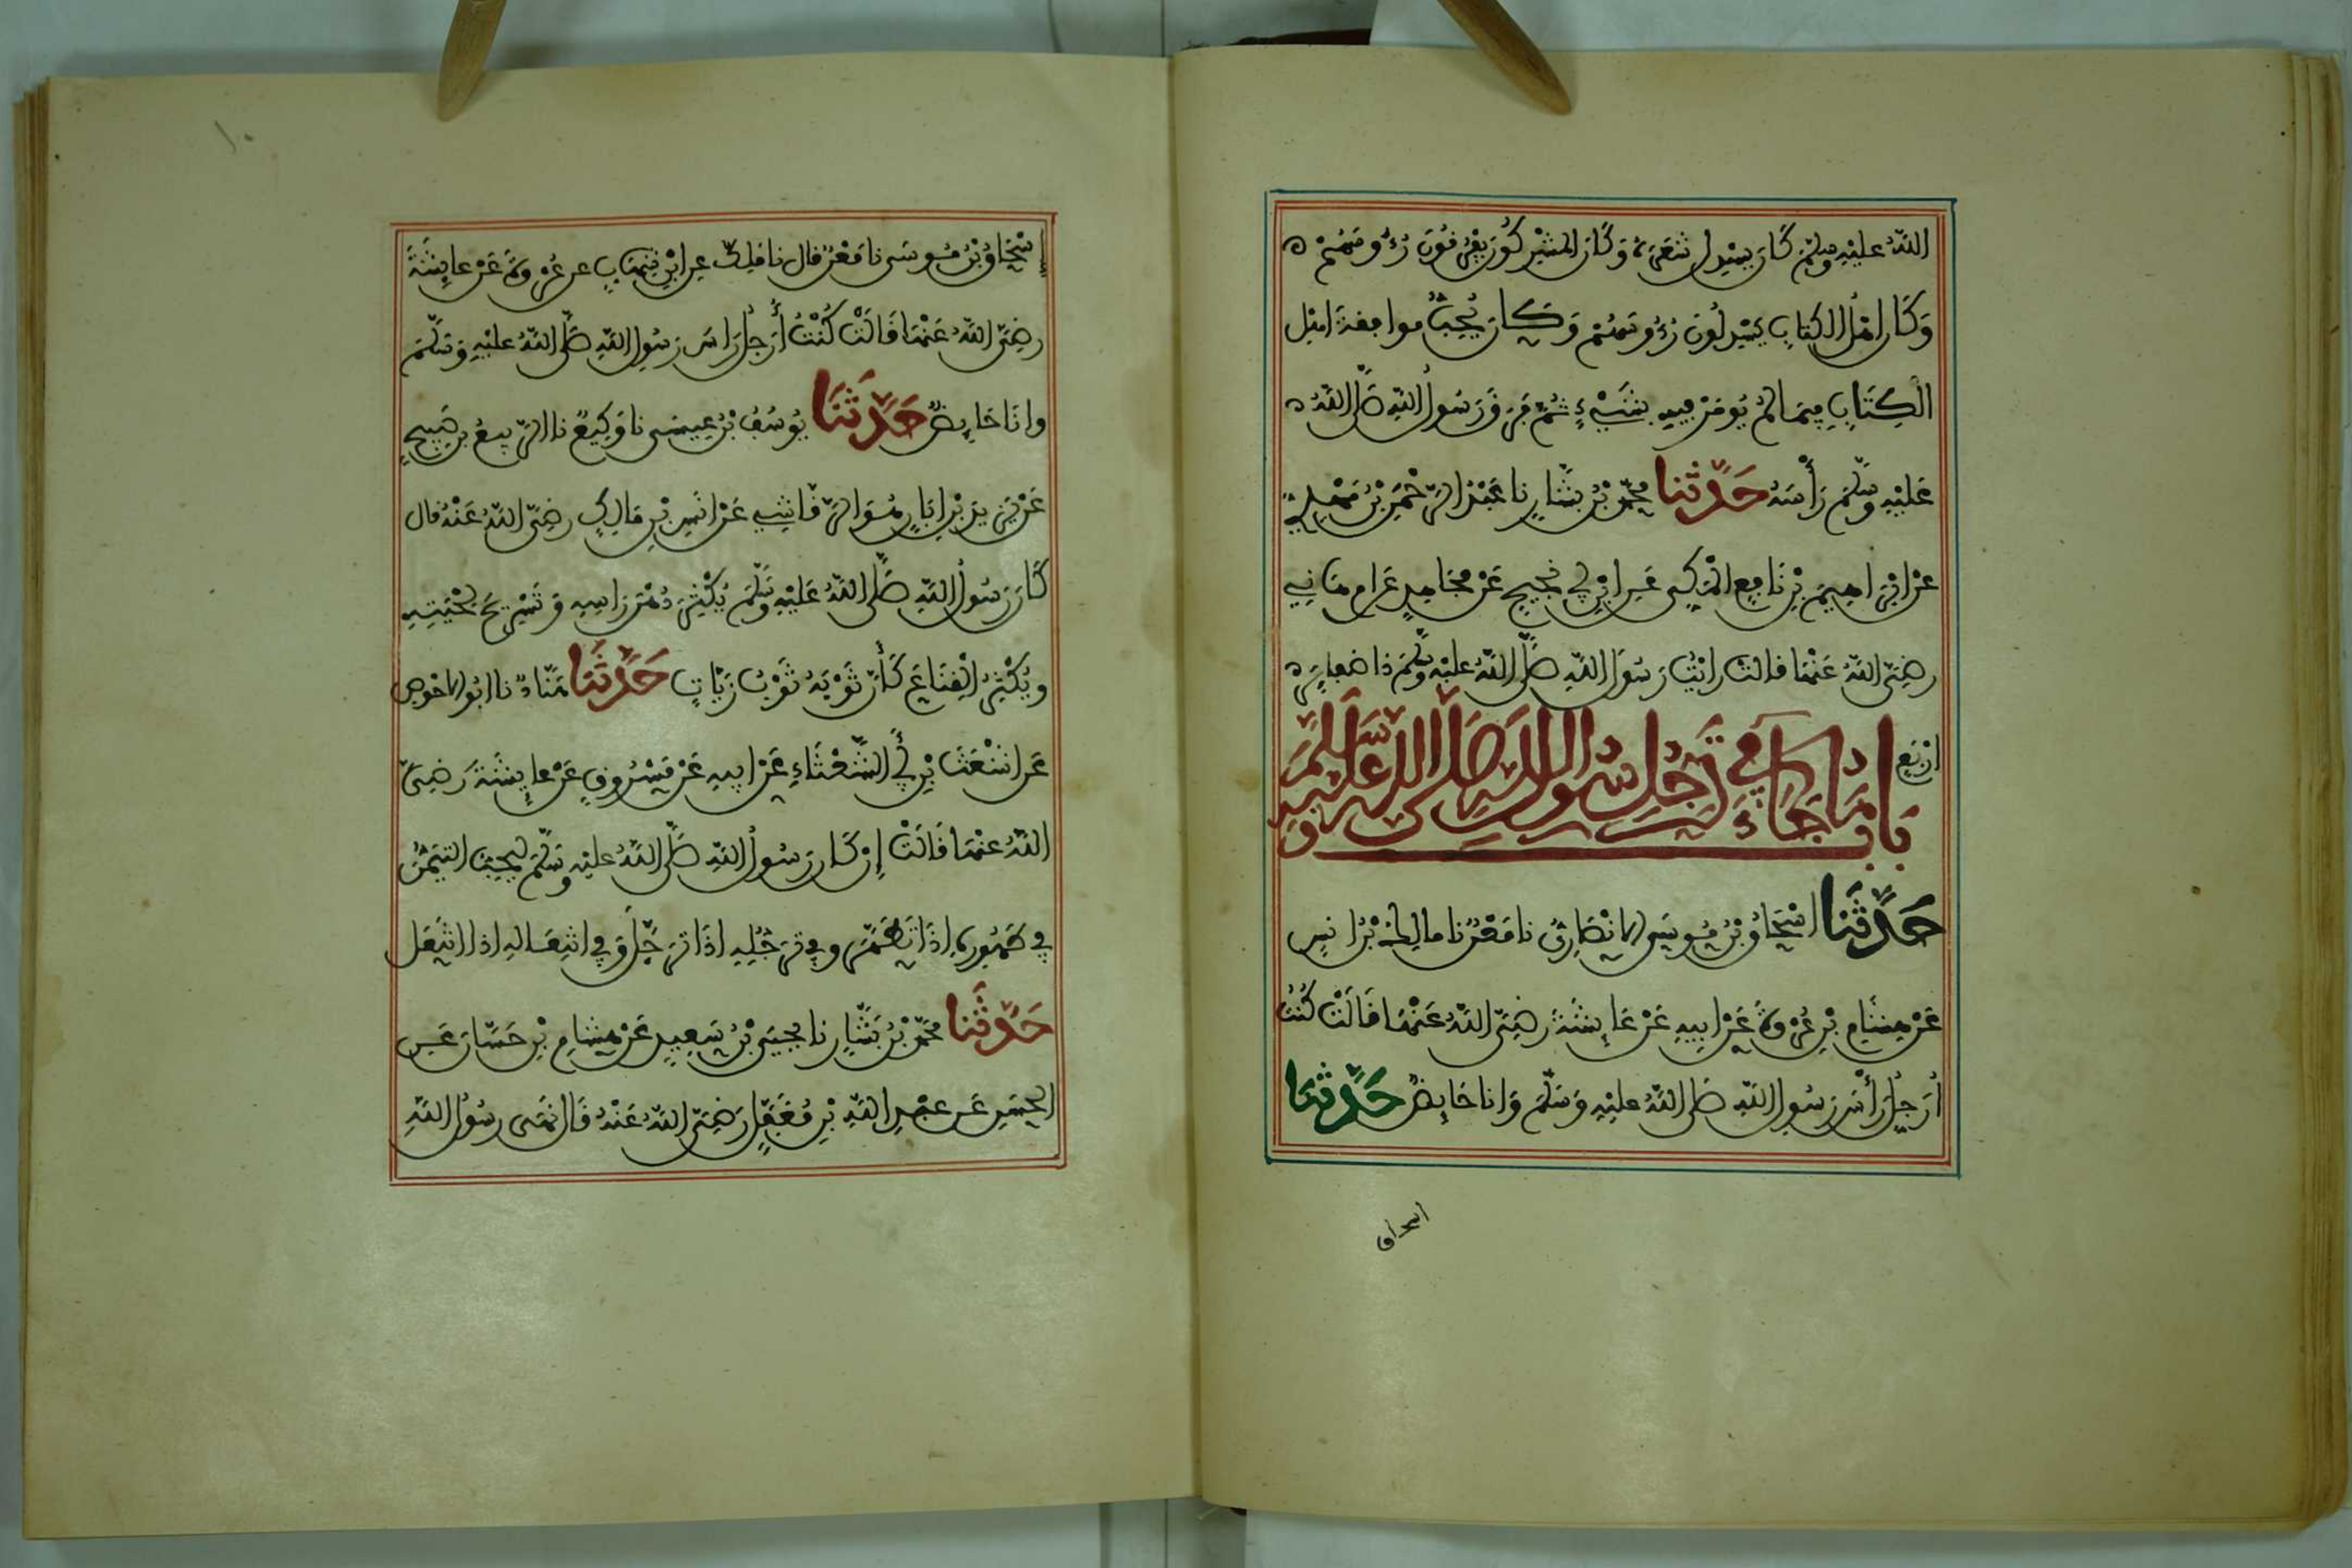 اللهُ عليْهِ وسلمْ كَان يسْدِل شعَرَه وَكَان المشْركُون يَفْرُفُونَ رُءُوسَهُمْ
وَكَان اهْلُ الكِتابِ يَسْدلُونَ رُءُوسَهُمْ وَكَان يُحِبُّ موافقةَ اهْل
الْكِتَابِ فيمَا لمْ يُومَرْ فيهِ بشَيْءٍ ثُمَّ فَرَقَ رَسُولُ اللهِ صَلَّى اللهُ
عَليْهِ وسَلَّمَ رَأْسَهُ حَدَّثنا محمّد بْنُ بشَّارٍ نا عَبْدُ الرّحْمَنِ بْنُ مَهْدِيٍّ
عَنْ ابْرَاهِيمَ بْنِ نَافِعٍ الْمَكِّي عَنِ ابْنِ أَبِي نَجِيحٍ عَنْ مجَاهِدٍ عَن ام هَانِي
رضِيَ اللهُ عَنْهَا قالت رايْتُ رَسُولَ اللهِ صَلَّى اللهُ عليْهِ وسَلَّمَ ذا ضفايِرَ
ارْبَع
بَابُ مَا جَاءَ فِي تَرَجُّلِ رَسُولِ اللهِ صَلَّى اللهُ عَلَيْهِ وَسَلَّمَ
حَدَّثَنَا اسْحَاقُ بْنُ مُوسَى الانْصَارِيُّ نا مَعْنٌ نا مالِكُ بْنُ انَسٍ
عَنْ هِشَامِ بْنِ عُرْوَةَ عَنْ ابِيهِ عَنْ عَايِشَةَ رضِيَ اللهُ عَنْهَا قَالَتْ كُنْتُ
أُرَجِّلُ رَأْسَ رَسُولِ اللهِ صَلى اللهُ عليْهِ وَسَلَّمَ وَانا حَايِضٌ حَدَّثنا
اسحاق
١٠
إسْحَاقُ بْنُ مُوسَى نا مَعْنٌ قال نا مَلِكٌ عنِ ابْنِ شِهَابٍ عن عُرْوَةَ عَنْ عَايِشَةَ
رضِيَ اللهُ عَنْهَا قَالَتْ كُنْتُ أُرَجِّلُ رَاسَ رَسُولِ اللهِ صَلَّى اللهُ عليْهِ وَسَلَّمَ
وانَا حَايِضٌ حَدَّثَنَا يُوسُفُ بْنُ عِيسَى نا وَكِيعٌ نا الرَّبِيعُ بن صَبِيحٍ
عَنْ يَزِيدَ بْنِ ابَانٍ هُوَ الرَّقَاشِي عَنْ انَسِ بْنِ مَالِكٍ رضِيَ اللهُ عَنْهُ قال
كَانَ رَسُولُ اللهِ صَلَّى اللهُ عَلَيْهِ وسَلَّمَ يُكْثِرُ دُهْنَ رَاسِهِ وَتَسْرِيحَ لحْيَتِهِ
ويُكْثِرُ الْقِنَاعَ كَأَنَّ ثَوْبَهُ ثَوْبُ زَيَّاتٍ حَدَّثَنَا هَنَّادٌ نا ابُو الاحْوَصِ
عَن اشْعَثَ بْنِ أَبِي الشَّعْثَاءِ عَنْ ابِيهِ عَنْ مَسْرُوقٍ عَنْ عايِشَةَ رَضِيَ
اللهُ عنْهَا قَالَتْ إِنْ كَان رَسُولُ اللهِ صَلَّى اللهُ عليْهِ وسَلَّمَ لَيحِبُّ التيَمُّنَ
في طهُورِهِ اذَا تَطَهَّرَ وفِي تَرَجُّلِهِ اذَا تَرَجَّلَ وَفِي انْتِعَالِهِ اذا انْتَعَلَ
حَدَّثَنا محَمّدُ بْنُ بَشَّارٍ نا يحيى بْنُ سَعِيدٍ عَنْ هِشَامِ بْنِ حَسَّان عَنِ
الحسَنِ عَن عبْدِ اللهِ بْنِ مُغَفَّلٍ رَضِيَ اللهُ عَنْهُ قَال نَهَى رسُولُ اللهِ